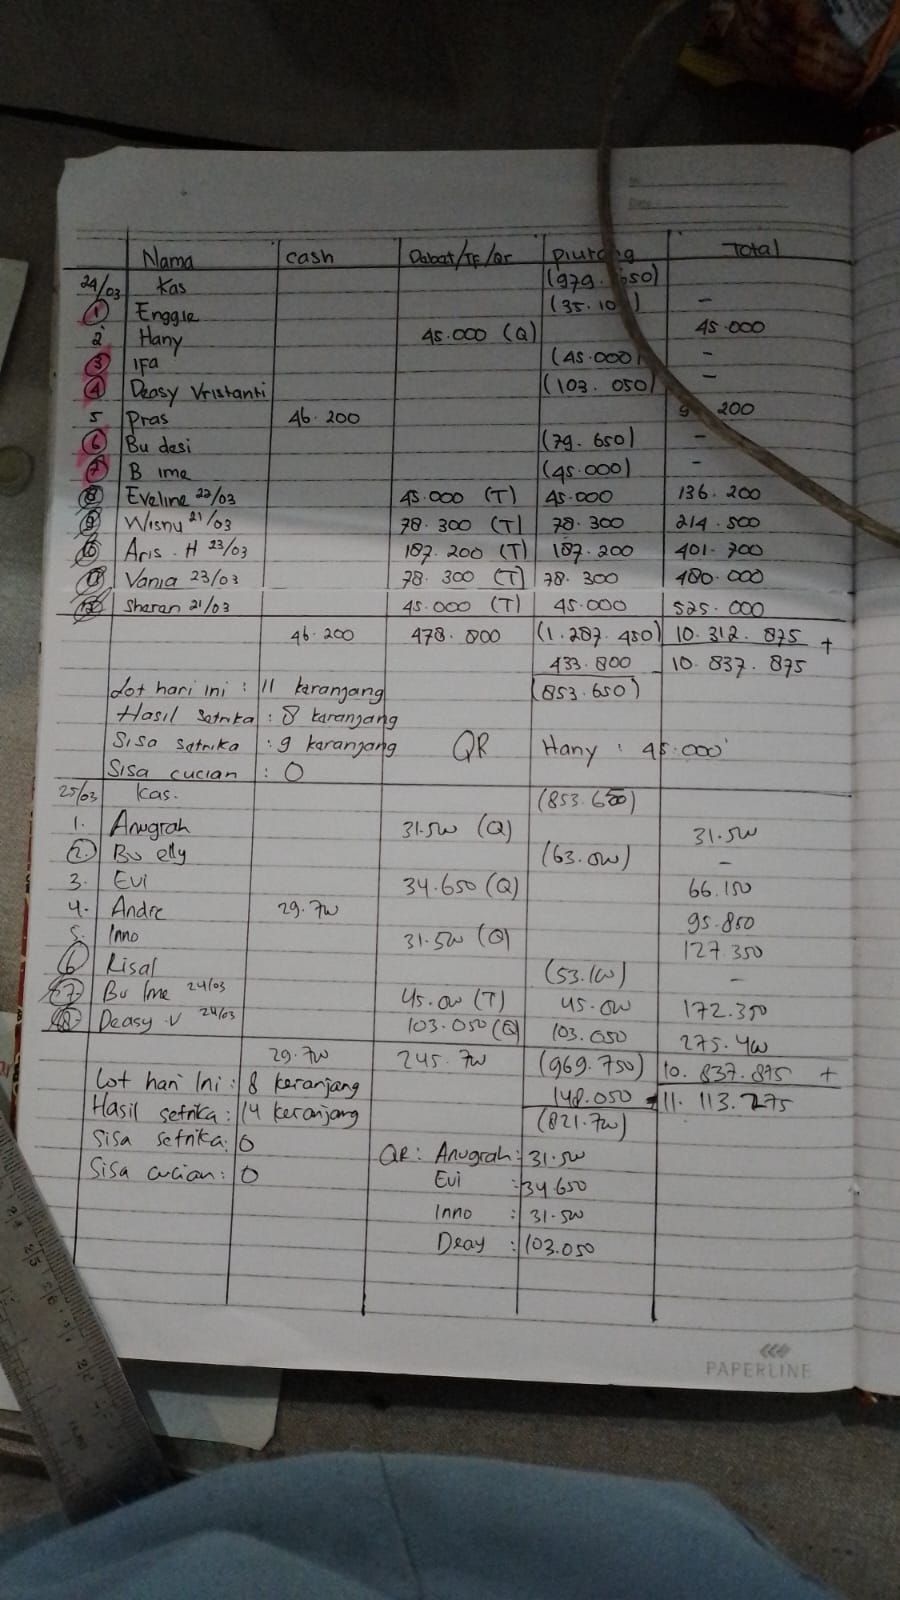 Nama cash Debat/TF/Qr Total
24/03 Kas
1 Enggie -
2 Hany 45.000 (Q) 45.000
3 IFa (45.000) -
4 Deasy Vristanti (103.050) -
5 Pras 46.200 200
6 Bu desi (79.650) -
7 B Ime (45.000) -
8 Eveline 22/03 45.000 (T) 45.000 136.200
9 Wisnu 21/03 78.300 (T) 78.300 214.500
10 Aris.H 23/03 187.200 (T) 187.200 401.700
11 Vania 23/03 78.300 (T) 78.300 480.000
12 Sharan 21/03 45.000 (T) 45.000 525.000
46.200 478.800 (1.287.450) 10.312.875 +
433.800 10.837.875
Lot hari ini : 11 keranjang (853.650)
Hasil Setrika : 8 karanjang
Sisa setrika : 9 keranjang QR Hany : 45.000
Sisa cucian : 0
25/03 Kas. (853.650)
1. Anugrah 31.5W (Q) 31.5W
2. Bu elly (63.0W) -
3. Evi 34.650 (Q) 66.150
4. Andre 29.7W 95.850
5. Inno 31.5W (Q) 127.350
6 Risal (53.1W) -
7. Bu Ime 24/03 45.0W (T) 45.0W 172.350
8. Deasy.V 24/03 103.050 (Q) 103.050 275.4W
29.7W 245.7W (969.750) 10.837.875 +
Lot hari Ini : 8 keranjang 148.050 11.113.275
Hasil setrika : 14 keranjang (821.7W)
Sisa setrika : 0
QR : Anugrah : 31.5W
Sisa cucian : 0
Evi : 34.650
Inno : 31.5W
Deay : 103.050
PAPERLINE